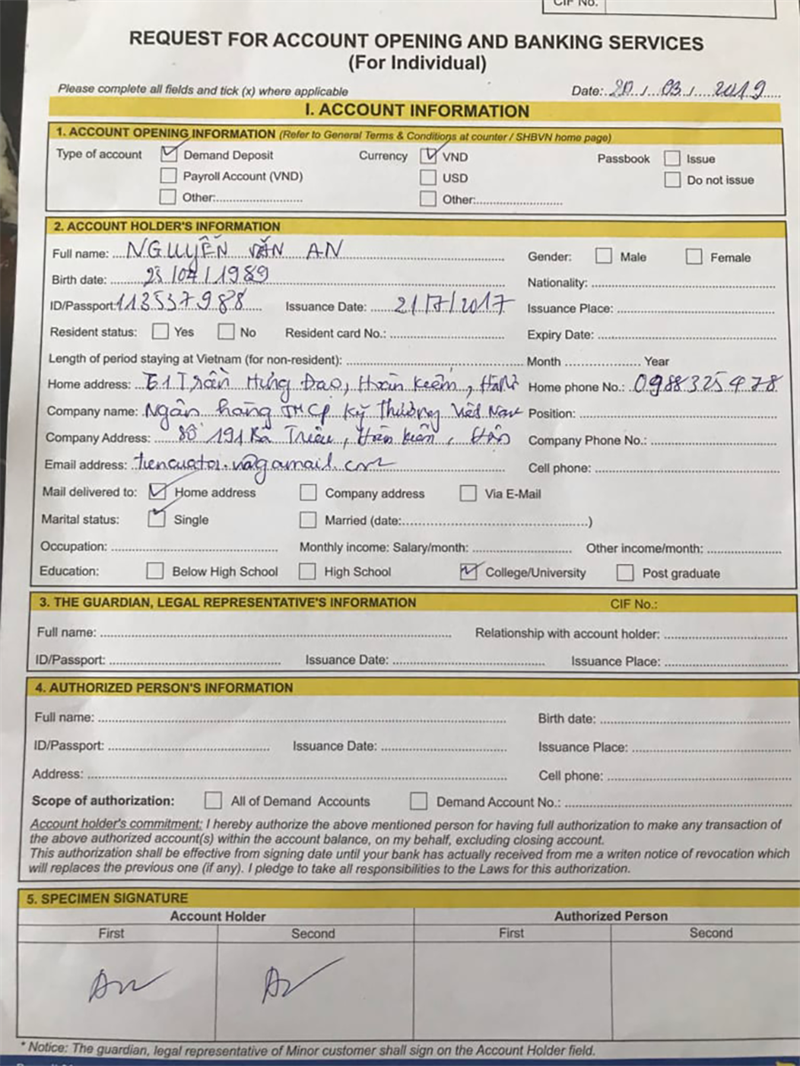 CIF No.
REQUEST FOR ACCOUNT OPENING AND BANKING SERVICES
(For Individual)
Please complete all fields and tick (x) where applicable Date: 20 / 03 / 2019
I. ACCOUNT INFORMATION
1. ACCOUNT OPENING INFORMATION (Refer to General Terms & Conditions at counter / SHBVN home page)
Type of account Demand Deposit Currency VND Passbook Issue
Payroll Account (VND) USD Do not issue
Other: Other:
2. ACCOUNT HOLDER'S INFORMATION
Full name: NGUYỄN VĂN AN Gender: Male Female
Birth date: 23/04/1989 Nationality:
ID/Passport: 113537988 Issuance Date: 21/7/2017 Issuance Place:
Resident status: Yes No Resident card No.: Expiry Date:
Length of period staying at Vietnam (for non-resident): Month Year
Home address: 61 Trần Hưng Đạo, Hoàn Kiếm, Hà Nội Home phone No.: 0988325478
Company name: Ngân hàng TMCP Kỹ Thương Việt Nam Position:
Company Address: Số 191 Bà Triệu, Company Phone No.:
Email address: Cell phone:
Mail delivered to: Home address Company address Via E-Mail
Marital status: Single Married (date: )
Occupation: Monthly income: Salary/month: Other income/month:
Education: Below High School High School College/University Post graduate
3. THE GUARDIAN, LEGAL REPRESENTATIVE'S INFORMATION CIF No.:
Full name: Relationship with account holder:
ID/Passport: Issuance Date: Issuance Place:
4. AUTHORIZED PERSON'S INFORMATION
Full name: Birth date:
ID/Passport: Issuance Date: Issuance Place:
Address: Cell phone:
Scope of authorization: All of Demand Accounts Demand Account No.:
Account holder's commitment: I hereby authorize the above mentioned person for having full authorization to make any transaction of
the above authorized account(s) within the account balance, on my behalf, excluding closing account.
This authorization shall be effective from signing date until your bank has actually received from me a writen notice of revocation which
will replaces the previous one (if any). I pledge to take all responsibilities to the Laws for this authorization.
5. SPECIMEN SIGNATURE
Account Holder Authorized Person
First Second First Second
* Notice: The guardian, legal representative of Minor customer shall sign on the Account Holder field.